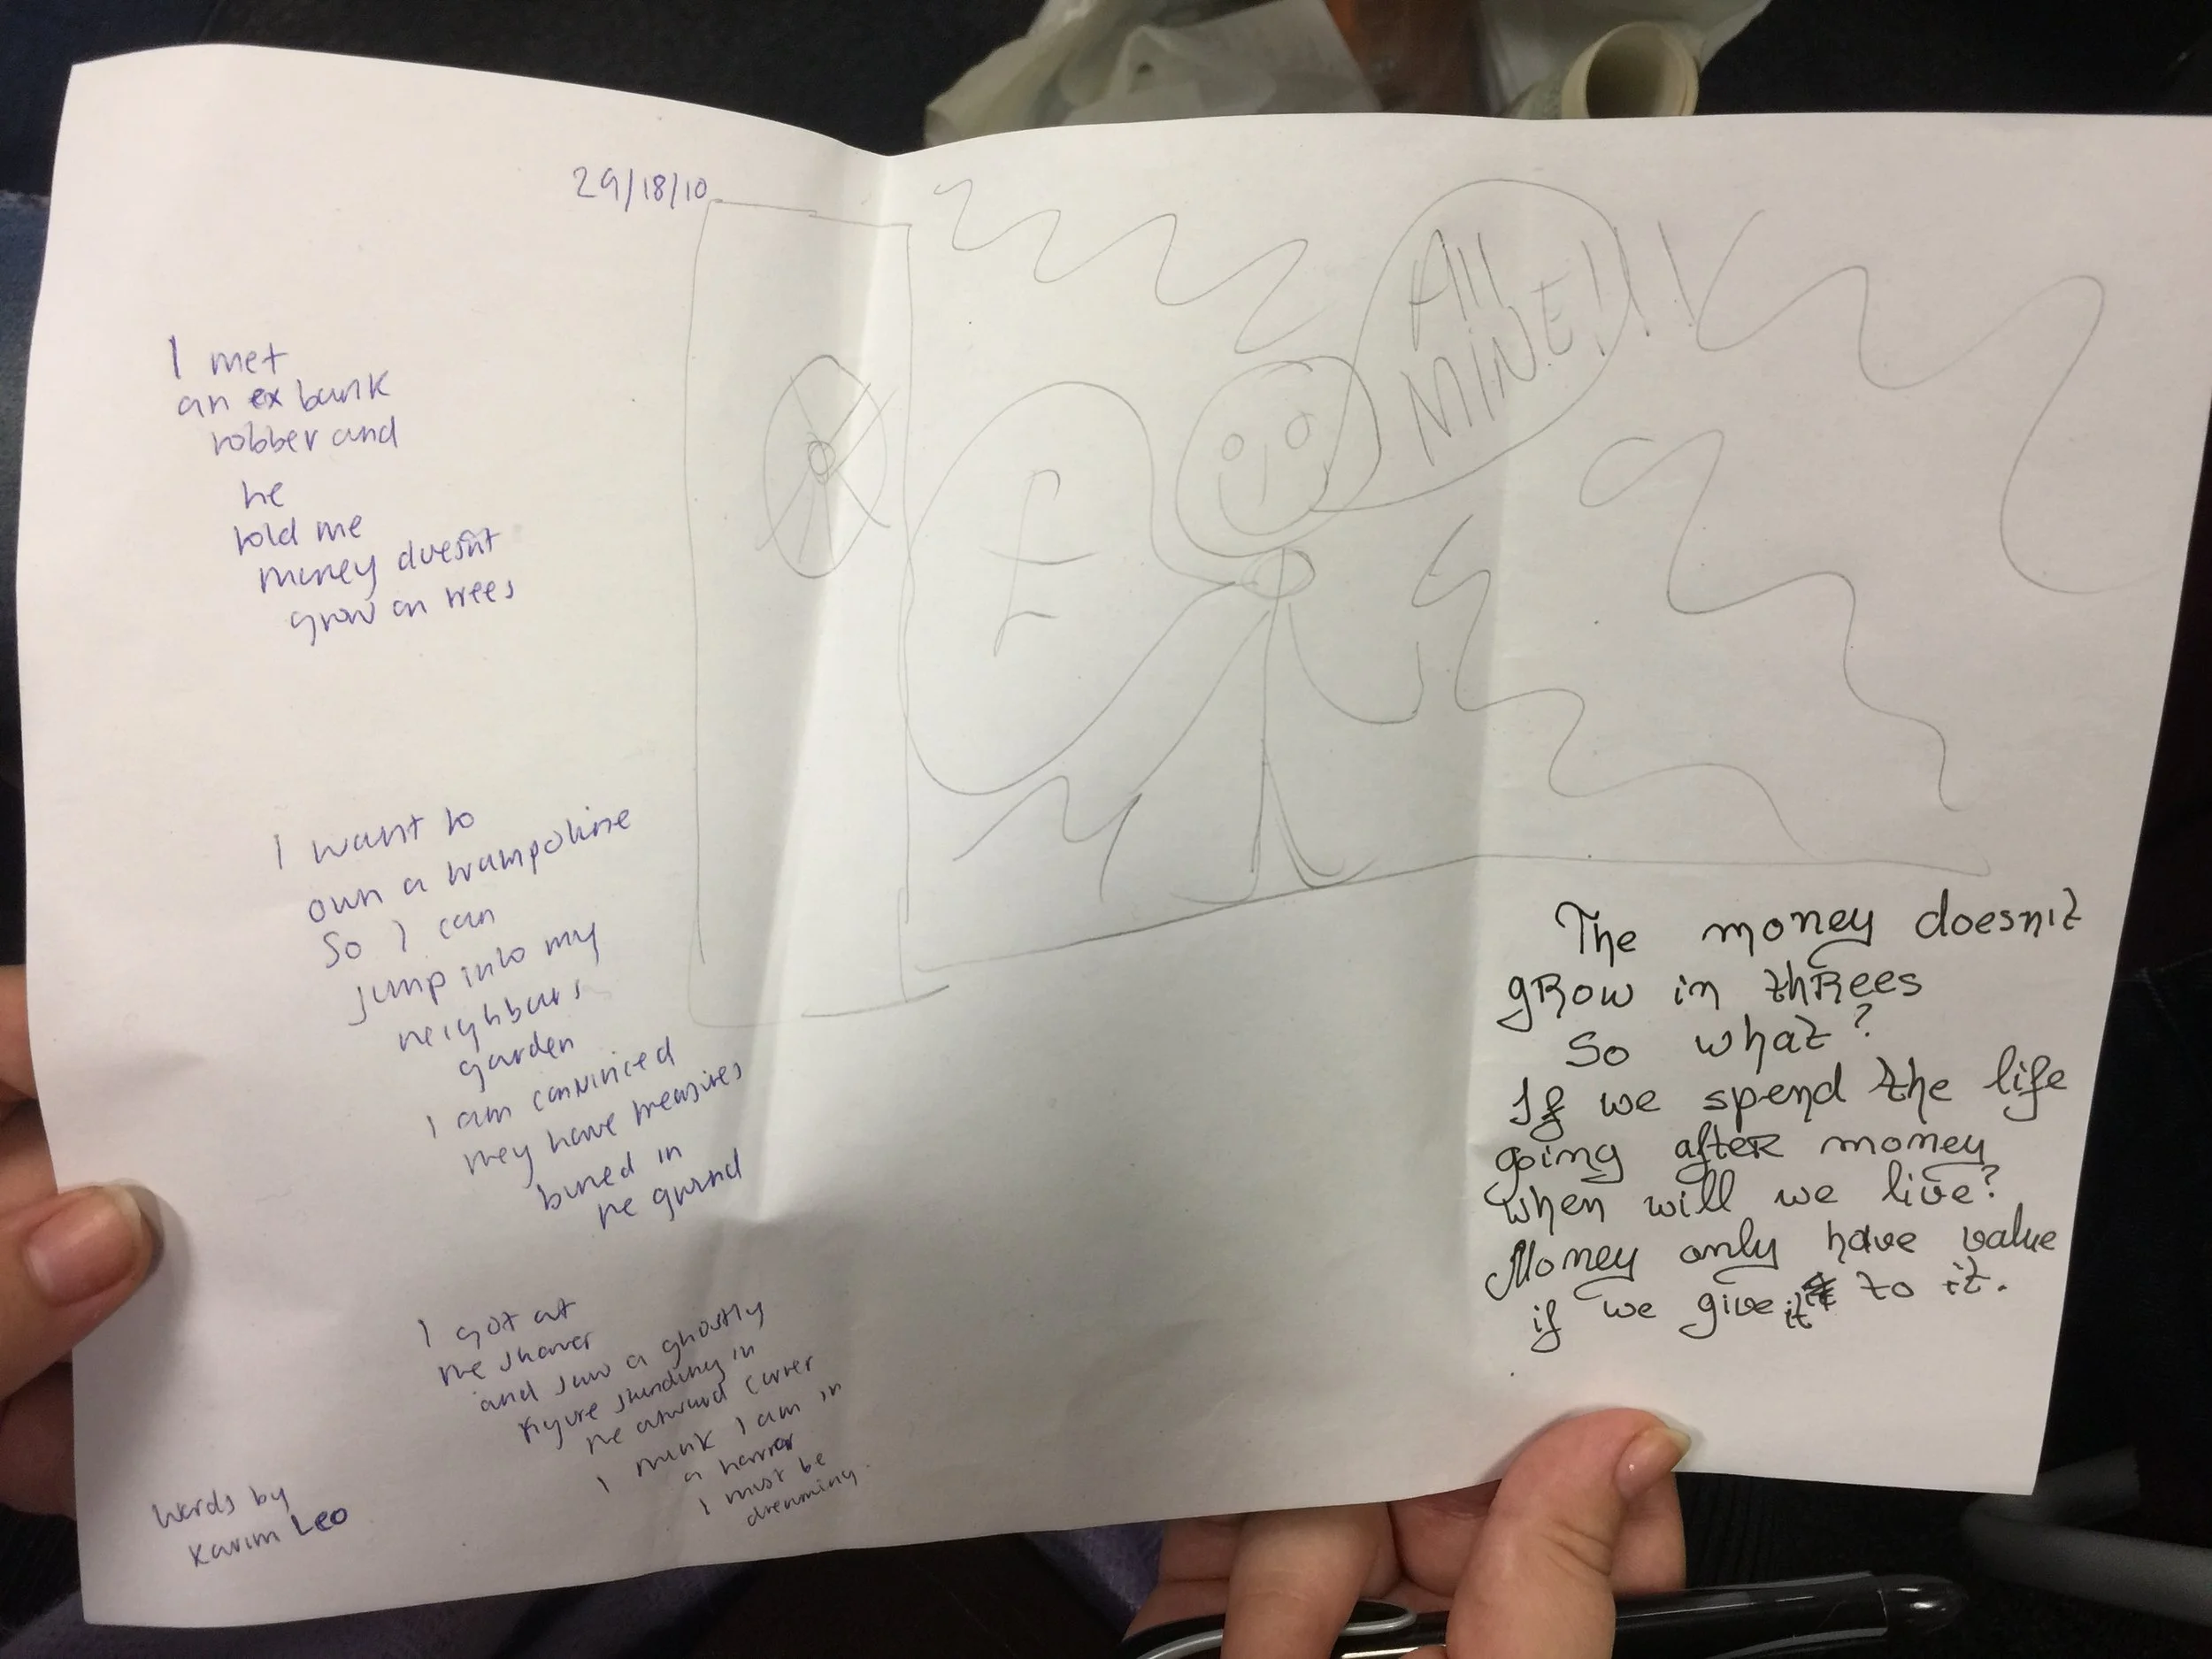 29/18/10
I met
an ex bank
robber and
he
told me
money doesn't
grow on trees
I want to
own a trampoline
So I can
jump into my
neighbours
garden
I am convinced
they have treasures
buried in
the ground
I got out
the shower
and saw a ghostly
figure standing in
the corner
I think I am in
a horror
I must be
dreaming.
Words by
Karim Leo
All
MINE!!!
£
The money doesn't
grow in threes
So what?
If we spend the life
going after money
when will we live?
Money only have value
if we give it to it.